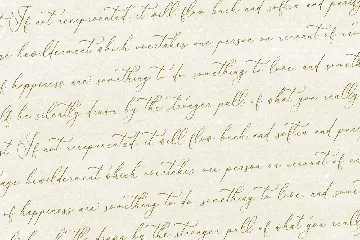 If not reciprocated, it will flow back and soften and purify
bewilderment which overtakes one person on account of
of happiness are: something to do, something to love, and something
be silently drawn by the stronger pull of what you really
If not reciprocated, it will flow back and soften and
bewilderment which overtakes one person on account of
of happiness are: something to do, something to love, and some
drawn by the stronger pull of what you really